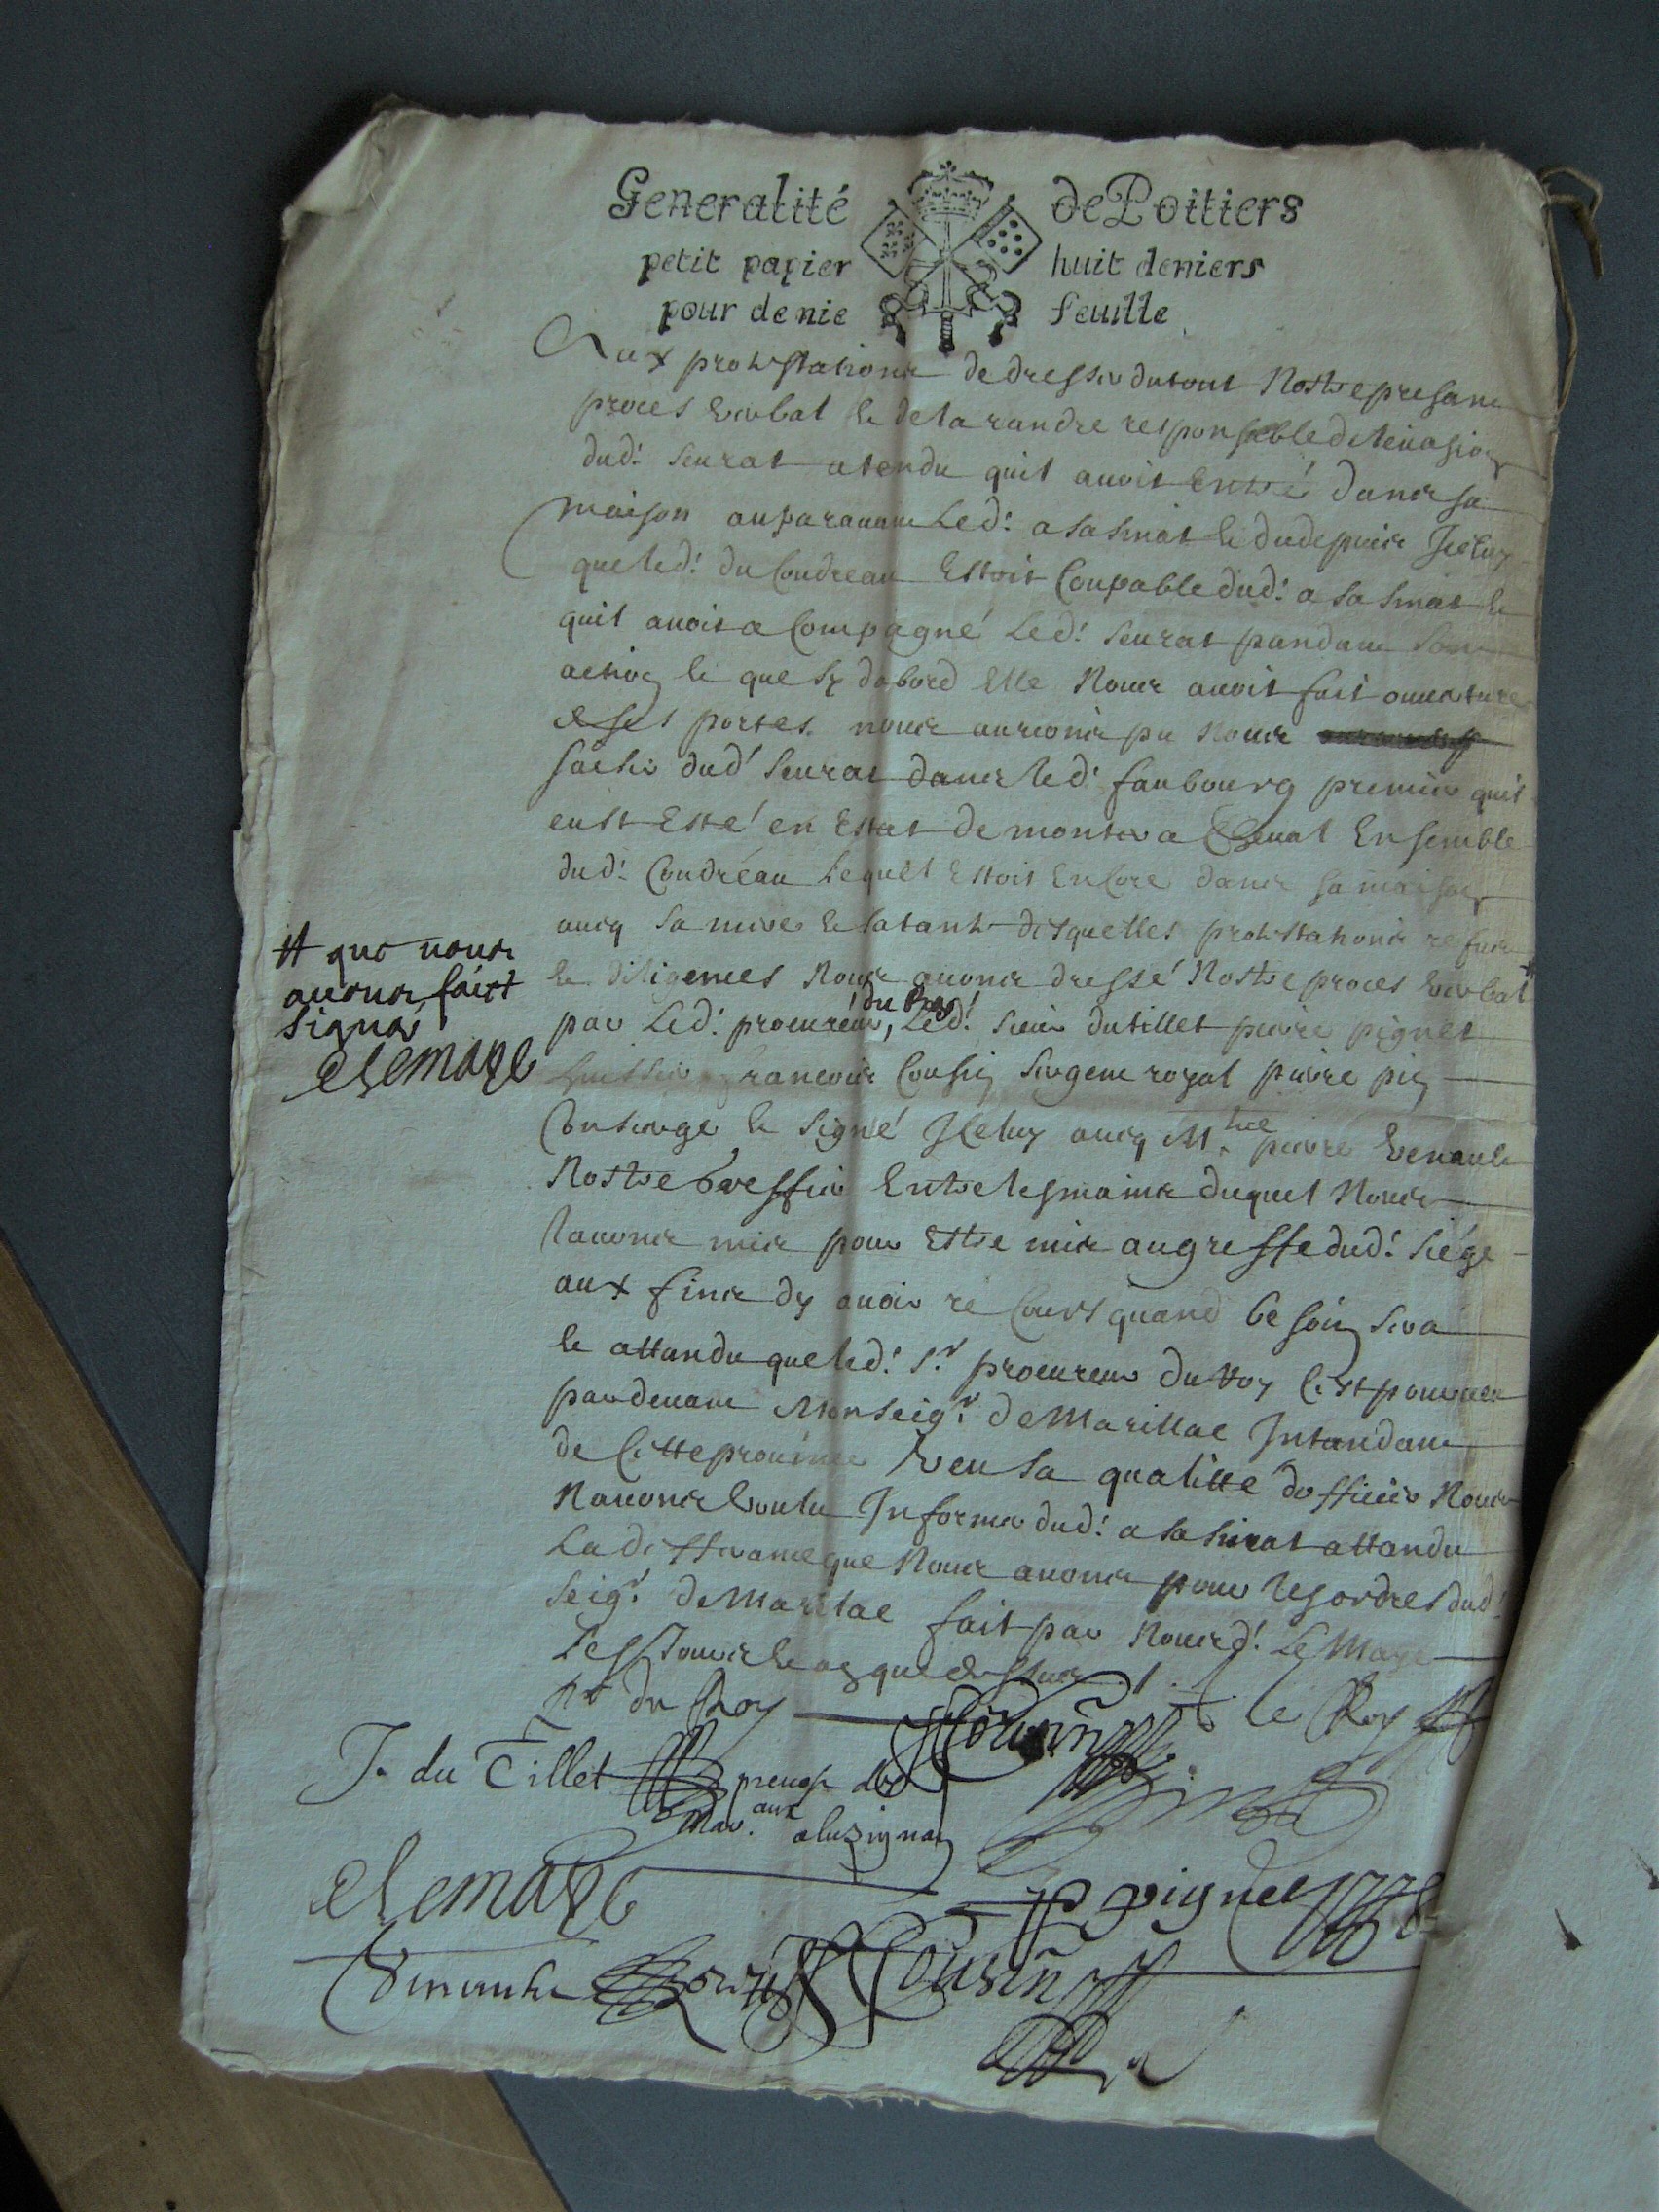 Generalité de Poitiers
petit papier huit deniers
pour demie feuille
Aux protestations de dresser du tout Nostre presant
proces verbal & de la randre responsable de levasion
dud: seurat atendu quil avoit entré dans sa
maison auparavant led: asasinat & du depuis Iceluy
que led: du Coudreau Estoit Coupable dud: asasinat &
quil avoit acompagné led: seurat pandant son
action & que sy dabord Elle Nous avoit fait ouverture
de ses portes nous aurions pu Nous
saisir dud: seurat dans led: faubourg premier quil
eust Esté en Estat de monter a Cheval Ensemble
dud: Coudreau lequel Estoit Encore dans sa maison
avecq sa mere & la tante desquelles protestations refus
& diligences Nous avons dressé Nostre proces verbal #
# que nous
avons faict
signer
elemaye
par Led: procureur, du Roy Led: sieur dutillet pierre pignet
huissier francois Cousin sergent royal pierre pin
Consierge & signé Iceluy avecq M.tre pierre venault
Nostre Greffier Entre les mains duquel Nous
lavons mis pour Estre mis au greffe dud: siége
aux fins dy avoir recours quand besoin sera
& attandu que led: s.r procureur du Roy Cest pourveu
pardevant Monseig.r de Marillac Intandant
de Cette province veu sa qualitté dofficier Nous
Navons voulu Informer dud: asasinat attandu
La defferance que Nous avons pour les ordres dud:
seig.r de Marillac fait par Nousd: Le Maye
Les Jour & an que dessus
pr du Roy Cousin le Roy
J. du Tillet
aux
a luzignan
elemaye
p pignet
Cousin